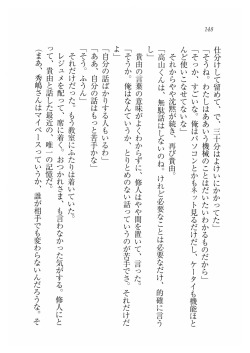 148
仕分けして留めて、で、三十分はよけいにかかってた」
「そうね。わたしはああいう機械のことはだいたいわかるものだから」
「そうか。すごいな。俺はパソコンとかもネット見るだけだし、ケータイも機能ほと
んど使いこなせてないな」
それからやや沈黙が続き、再び貴由。
「高山くんは、無駄話はしないのね。けれど必要なことは必要なだけ、的確に言う
わ」
貴由の言葉の意味がよくわからずに、修人はやや間を置いて、言った。
「そうか。俺はなんていうか、とりとめのない話っていうのが苦手でさ。それだけだ
よ」
「自分の話ばかりする人もいるわ」
「ああ、自分の話はもっと苦手かな」
「そう。ふうん」
それだけだった。もう教室にふたりは着いていた。
レジュメを配って、席に着く。おつかれさま、も言わなかった気がする。修人にと
って、貴由と話した最近の、唯一の記憶だ。
「まあ、秀嶋さんはマイペースっていうか、誰が相手でも変わらないんだろうな。そ